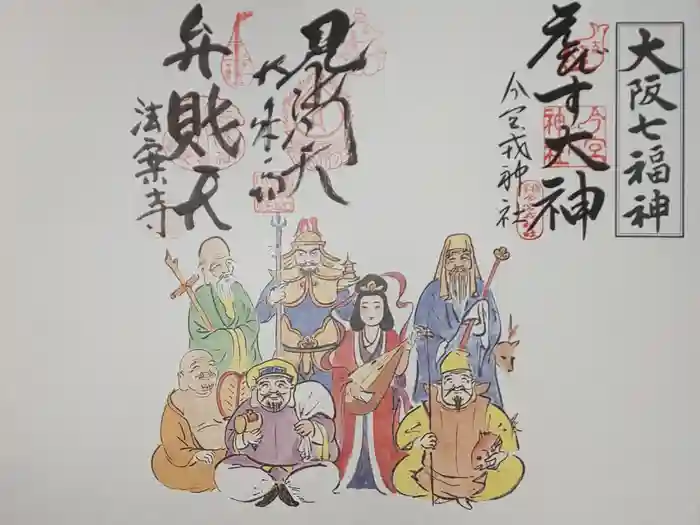 大阪七福神
えびす大神
今宮戎神社
今宮
神社
毘沙門天
大乗坊
弁財天
法案寺